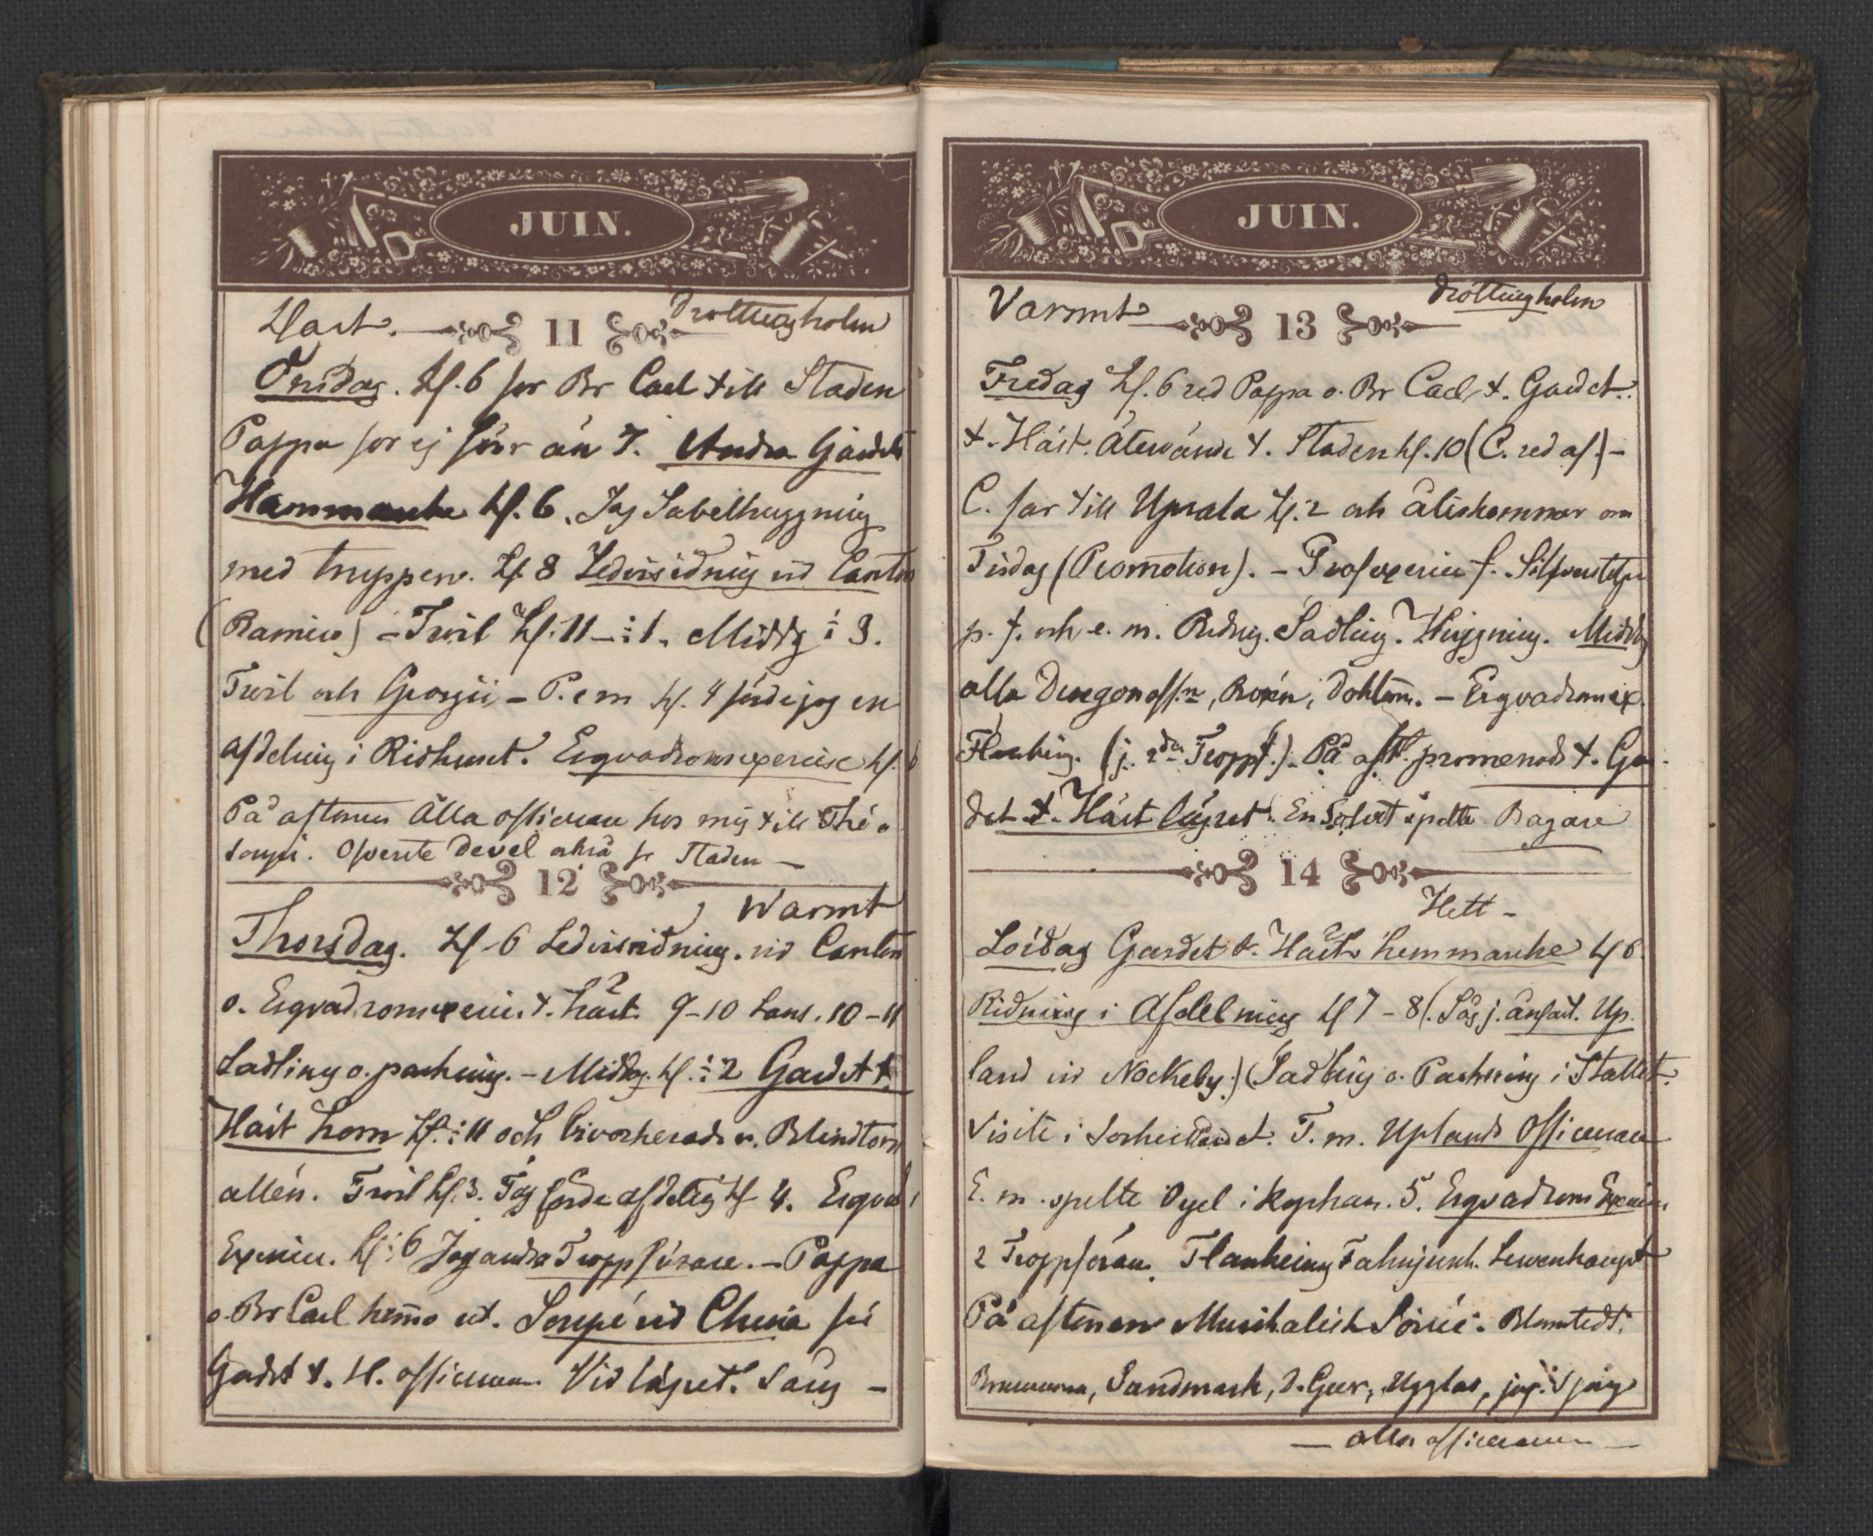 JUIN.
11 Drottningholm
Onsdag. Kl. 6 for Br Carl till Staden
Pappa for ej förr än 7. Andra Gardets
Hemmarche Kl. 6. Jag Sabelhuggning
med truppen. Kl 8 Ledvisridning vid Canton
(Ramico) – Tvol Kl. 11 – 1. Middg 3.
och Georgii – P. e m kl. 4 förde jag en
afdelning i Ridhuset. Esqvadronsexercise kl. 6
På aftonen Alla officerare hos mig till Thé o
soupé. Deveel också fr Staden –
12
Warmt
Thorsdag. Kl 6 Ledvisridning vid Canton
o. Esqvadronsexercis t. häst. 9–10 Lans. 10–11
Sadling o. packning. – Middag kl. 2 Gardet t.
Häst kom Kl. 11 och bivorkerade v. Blindtorn
allén. Kl. 3. Jag förde afdelnig kl 4. Esqvad
Exercice. Kl 6 Jag andra Troppförare. – Pappa
o. Br Carl hemmo ut. Soupé vid China för
Gardet t. H. officerare. Vid lägret. Sång –
JUIN.
Varmt 13 Drottningholm
Fredag Kl. 6 red Pappa o. Br Carl t. Gardet
t. Häst. Återvände t. Staden kl. 10 (C. red af) –
C. far till Upsala kl. 2 och återkommer om
Tisdag (Promotion). –
f. och e. m. Ridnig. Sadling. Huggning. Middag
alla Dragonoff:n, Doktorn. – Esqvadronsex.
Flankering. (j. 2dra Troppf.). På aft. promenad t. Gar-
det t. Häst lägret. En spelte Bagare
14
Hett –
Lördag Gardet t. Häst hemmarche kl 6.
Ridning i Afdelning kl 7 – 8 (Såg j. anfört. Up.
land vid Nockeby.) (Sadling o. Packning i Stallet.
Visite i T. m. Uplands Officerare
E. m. spelte Oyel i 5. Esqvadrons Exercis
2 Troppförare. Flankering Fahnjunk. Lewenhaupt
På aftonen Musikalisk Soirée. Blomstedt,
Sandmark, D. Geer, Ugglas, jag. Sjöng
– alla officerarne –